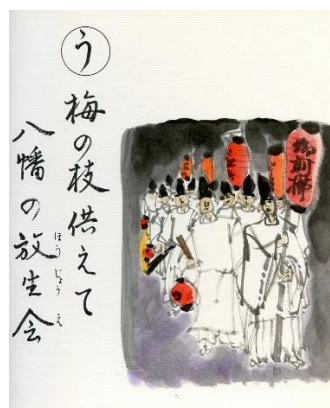 う
梅の枝供えて
八幡の放生会
ほうじょうえ
御前佛